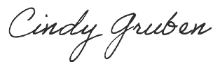 Cindy Gruben